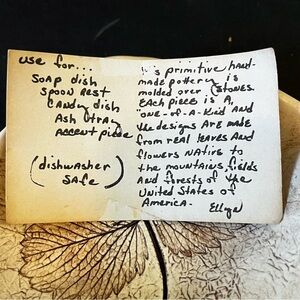 use for...
Soap dish
Spoon Rest
Candy dish
Ash tray
Accent piece
(dishwasher
Safe)
primitive hand-
made pottery is
molded over STONES.
EACH piece is A,
"one-of-A-kind AND
the designs ARE MADE
from real leaves AND
flowers NAtive to
the mountains, fields
AND forests of the
United States of
America-